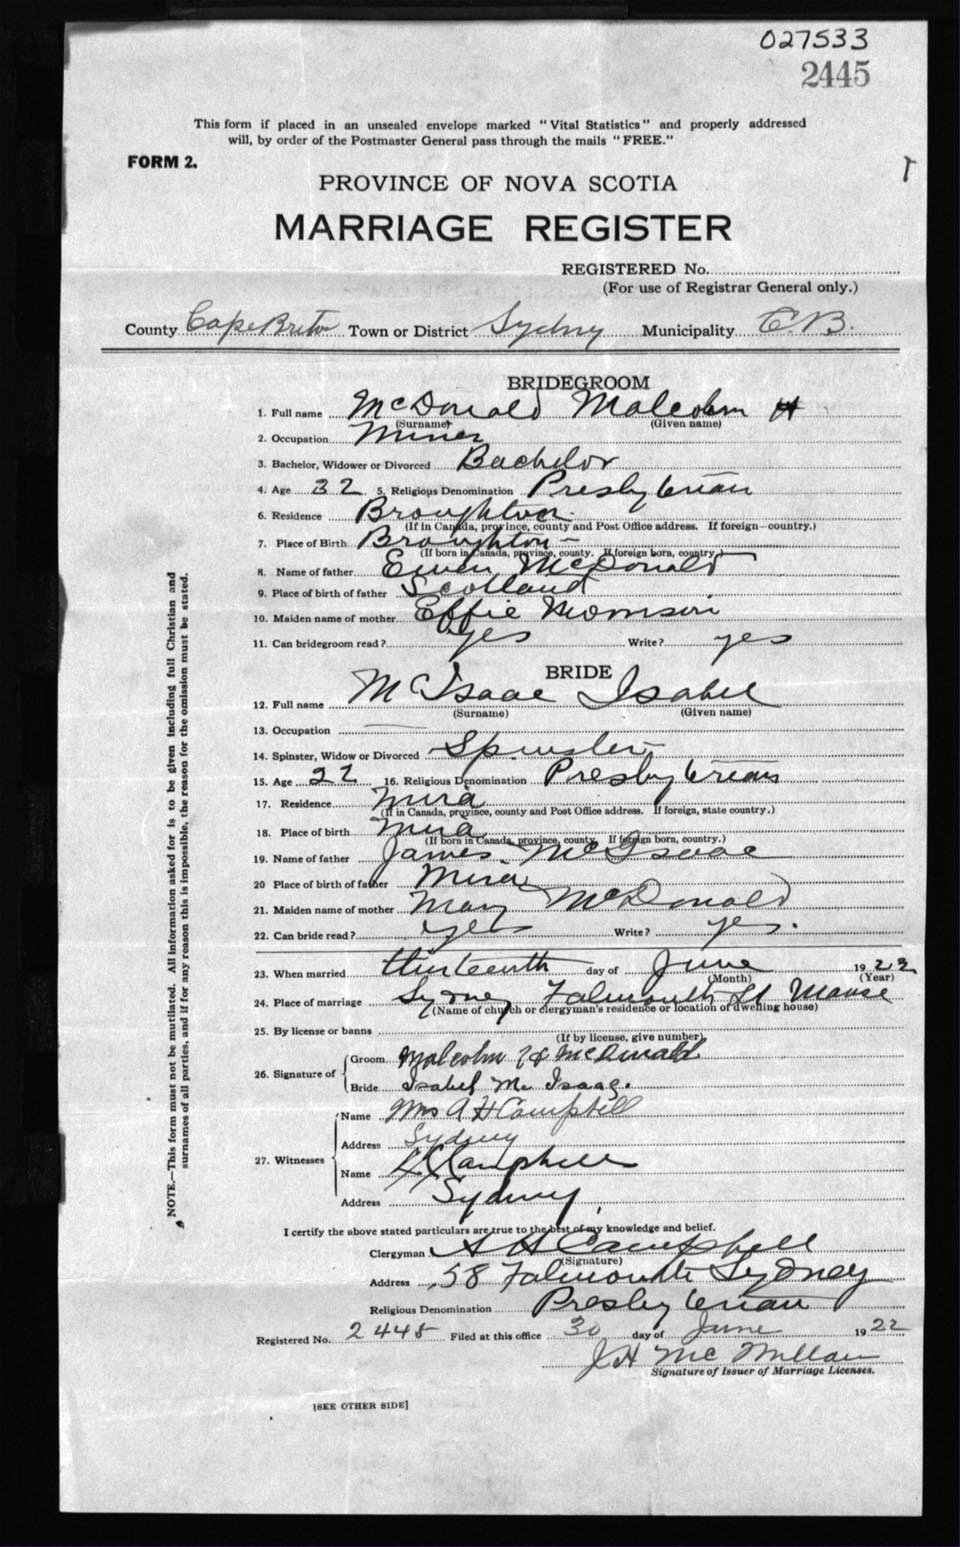 027533
2445
This form if placed in an unsealed envelope marked "Vital Statistics" and properly addressed
will, by order of the Postmaster General pass through the mails "FREE."
FORM 2.
PROVINCE OF NOVA SCOTIA
MARRIAGE REGISTER
REGISTERED No.
(For use of Registrar General only.)
County Cape Breton Town or District Sydney Municipality C.B.
BRIDEGROOM
1. Full name McDonald Malcolm H
(Surname) (Given name)
2. Occupation Miner
3. Bachelor, Widower or Divorced Bachelor
4. Age 32 5. Religious Denomination Presbyterian
6. Residence Broughton
(If in Canada, province, county and Post Office address. If foreign—country.)
7. Place of Birth Broughton
(If born in Canada, province, county. If foreign born, country)
8. Name of father Ewen McDonald
9. Place of birth of father Scotland
10. Maiden name of mother Effie Morrison
11. Can bridegroom read? yes Write? yes
BRIDE
12. Full name McIsaac Isabel
(Surname) (Given name)
13. Occupation
14. Spinster, Widow or Divorced Spinster
15. Age 22 16. Religious Denomination Presbyterian
17. Residence Mira
(If in Canada, province, county and Post Office address. If foreign, state country.)
18. Place of birth Mira
(If born in Canada, province, county. If foreign born, country.)
19. Name of father James McIsaac
20 Place of birth of father Mira
21. Maiden name of mother Mary McDonald
22. Can bride read? yes Write? yes.
23. When married thirteenth day of June 1922
(Month) (Year)
24. Place of marriage Sydney Falmouth St Manse
(Name of church or clergyman's residence or location of dwelling house)
25. By license or banns
(If by license, give number)
26. Signature of Groom Malcolm H McDonald
Bride Isabel Mc Isaac.
27. Witnesses Name Mrs A H Campbell
Address Sydney
Name Campbell
Address Sydney
I certify the above stated particulars are true to the best of my knowledge and belief.
Clergyman A H Campbell
(Signature)
Address 58 Falmouth Sydney
Religious Denomination Presbyterian
Registered No. 2445 Filed at this office 30 day of June 1922
J H McMillan
Signature of Issuer of Marriage Licenses.
[SEE OTHER SIDE]
NOTE.—This form must not be mutilated. All information asked for is to be given including full Christian and
surnames of all parties, and if for any reason this is impossible, the reason for the omission must be stated.